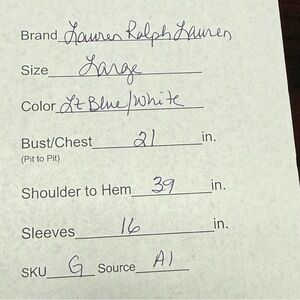 Brand Lauren Ralph Lauren
Size Large
Color Lt Blue/White
Bust/Chest 21 in.
(Pit to Pit)
Shoulder to Hem 39 in.
Sleeves 16 in.
SKU G Source A1